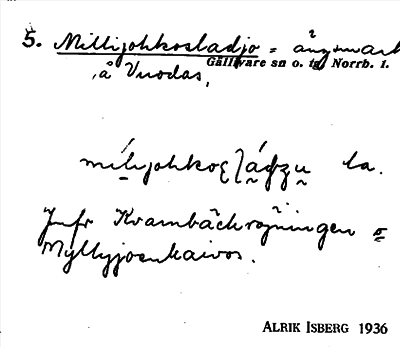 5. Millijohkosladjo = ängsmark
Gällivare sn o. tg Norrb. l.
å Vuodas,
la.
Jmfr Kvarnbäckröjningen o
Myllyjoenkaivos.
ALRIK ISBERG 1936